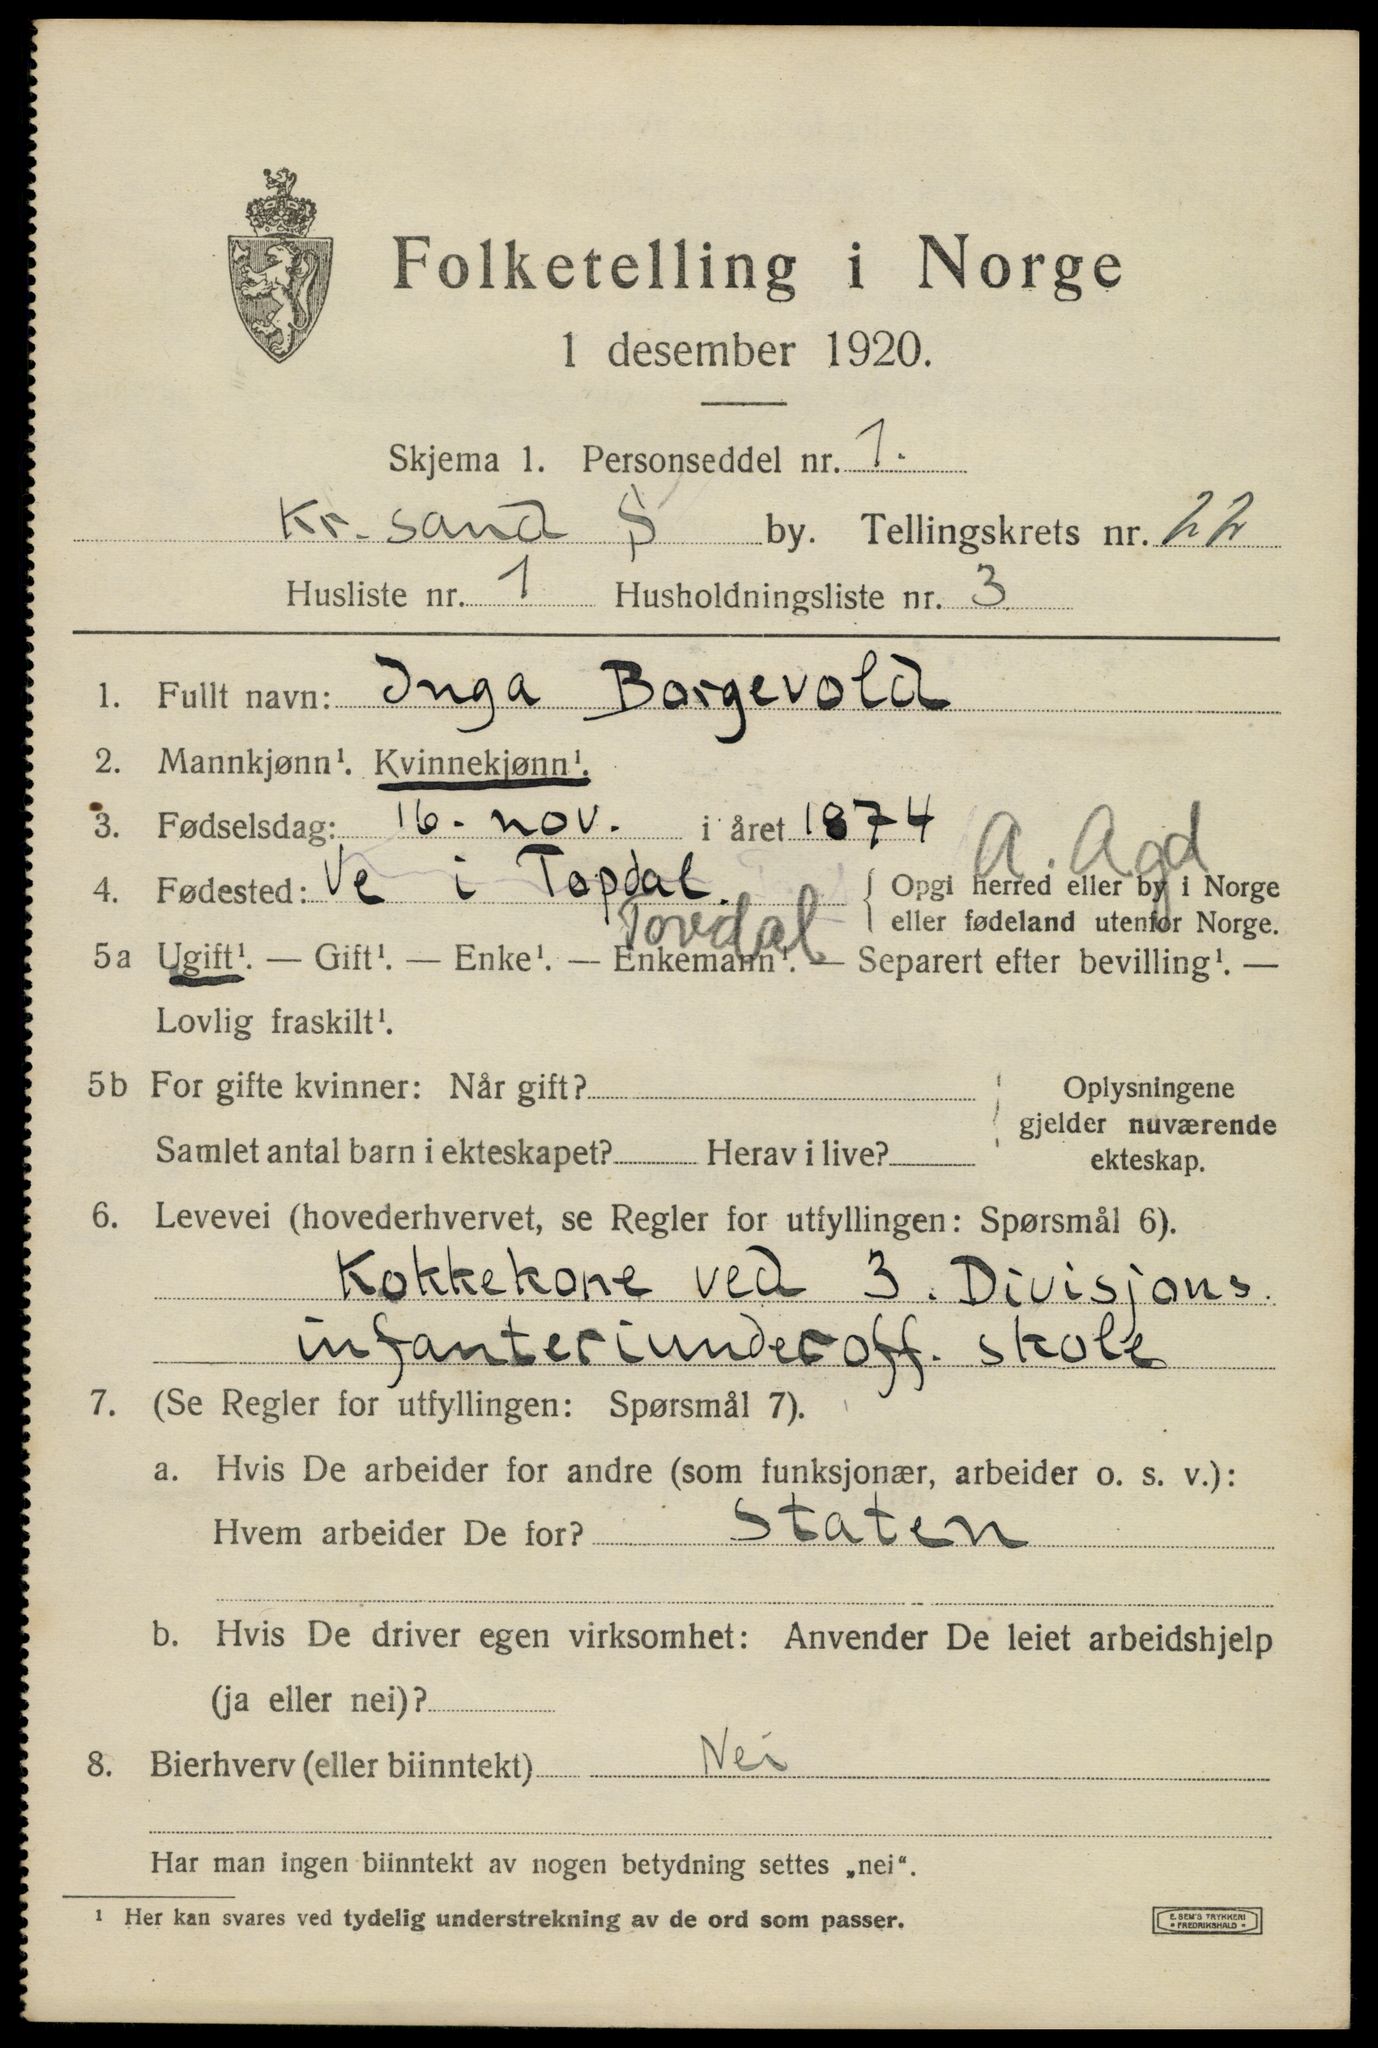 Folketelling i Norge
1 desember 1920.
Skjema 1. Personseddel nr. 1.
Kr. sand S by. Tellingskrets nr. 22
Husliste nr. 1 Husholdningsliste nr. 3
1. Fullt navn: Inga Borgevold
2. Mannkjønn¹. Kvinnekjønn¹.
3. Fødselsdag: 16. nov. i året 1874
A. Agd
4. Fødested: Ve i Topdal. Opgi herred eller by i Norge
eller fødeland utenfor Norge.
Tovdal
5a Ugift¹. — Gift¹. — Enke¹. — Enkemann¹. — Separert efter bevilling¹. —
Lovlig fraskilt¹.
5b For gifte kvinner: Når gift?
Samlet antal barn i ekteskapet? Herav i live?
Oplysningene
gjelder nuværende
ekteskap.
6. Levevei (hovederhvervet, se Regler for utfyllingen: Spørsmål 6).
Kokkekone ved 3. Divisjons.
infanteriunderoff. skole
7. (Se Regler for utfyllingen: Spørsmål 7).
a. Hvis De arbeider for andre (som funksjonær, arbeider o. s. v.):
Hvem arbeider De for? Staten
b. Hvis De driver egen virksomhet: Anvender De leiet arbeidshjelp
(ja eller nei)?
8. Bierhverv (eller biinntekt) Nei
Har man ingen biinntekt av nogen betydning settes „nei“.
¹ Her kan svares ved tydelig understrekning av de ord som passer.
E. SEM'S TRYKKERI
FREDRIKSHALD